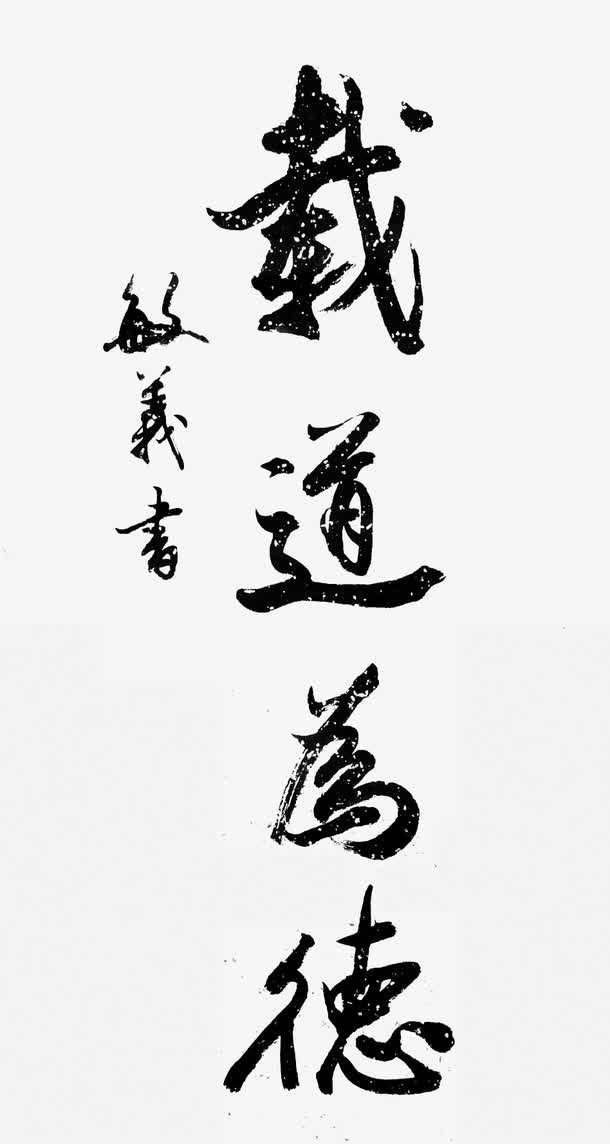 載道為德
敏義書